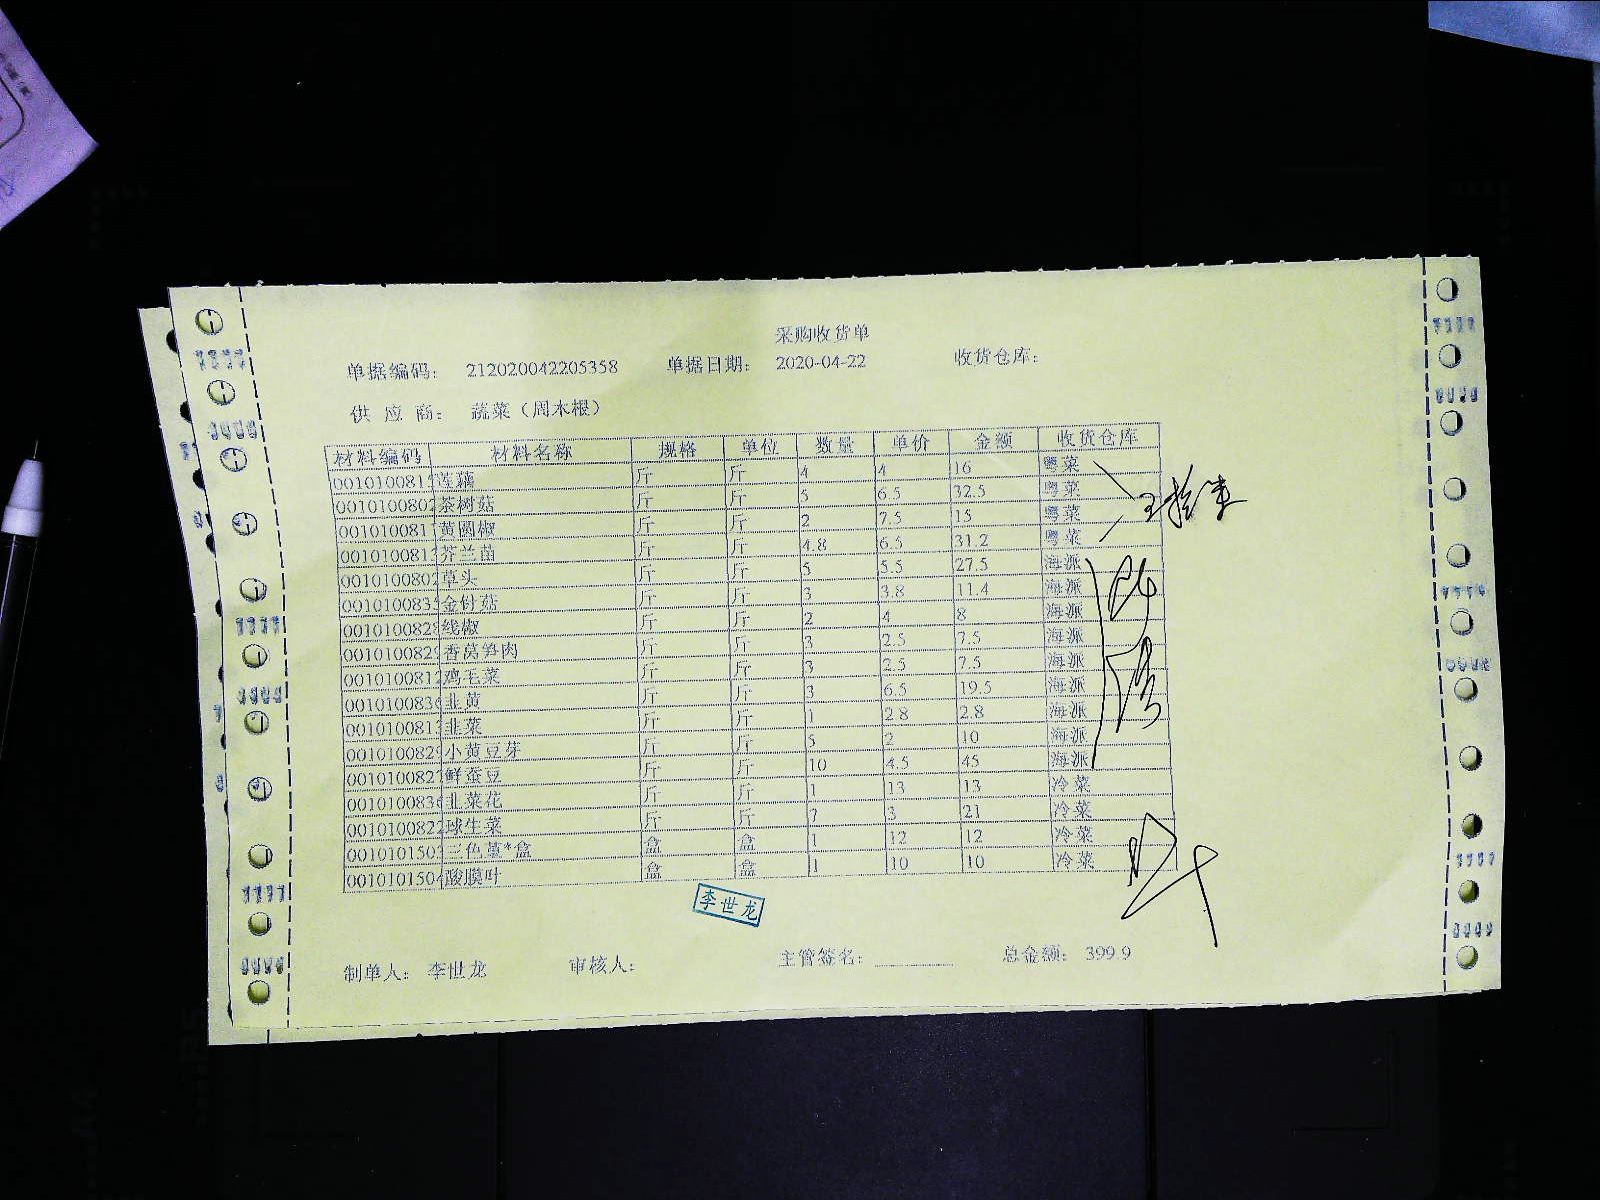 采购收货单
单据编码: 212020042205358 单据日期: 2020-04-22 收货仓库:
供 应 商: 蔬菜(周木根)
材料编码 材料名称 规格 单位 数量 单价 金额 收货仓库
001010081 莲藕 斤 斤 4 4 16 粤菜
001010080 茶树菇 斤 斤 5 6.5 32.5 粤菜
001010081 黄圆椒 斤 斤 2 7.5 15 粤菜
001010081 芥兰苗 斤 斤 4.8 6.5 31.2 粤菜
001010080 草头 斤 斤 5 5.5 27.5 海派
001010083 金针菇 斤 斤 3 3.8 11.4 海派
001010082 线椒 斤 斤 2 4 8 海派
001010082 香莴笋肉 斤 斤 3 2.5 7.5 海派
001010081 鸡毛菜 斤 斤 3 2.5 7.5 海派
001010083 韭黄 斤 斤 3 6.5 19.5 海派
001010081 韭菜 斤 斤 1 2.8 2.8 海派
001010082 小黄豆芽 斤 斤 5 2 10 海派
001010082 鲜蚕豆 斤 斤 10 4.5 45 海派
001010083 韭菜花 斤 斤 1 13 13 冷菜
001010082 球生菜 斤 斤 7 3 21 冷菜
001010150 三色堇*盒 盒 盒 1 12 12 冷菜
001010150 酸膜叶 盒 盒 1 10 10 冷菜
李世龙
制单人: 李世龙 审核人: 主管签名: 总金额: 399.9